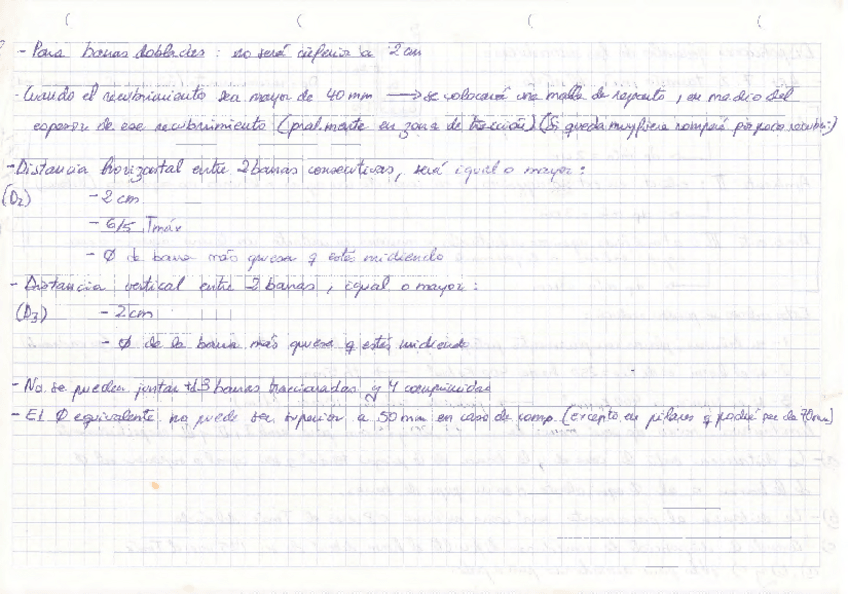 - Para barras dobladas: no será inferior a 2 cm
- Cuando el recubrimiento sea mayor de 40 mm → se colocará una malla de reparto, en medio del
espesor de ese recubrimiento (pral.mente en zona de tracción) (Si queda muy fuera romperá por poco recubri:)
- Distancia horizontal entre 2 barras consecutivas, será igual o mayor:
(D2) - 2 cm
- 6/5 Tmáx
- Ø de barra más gruesa q estés midiendo
- Distancia vertical entre 2 barras, igual o mayor:
(D3) - 2 cm
- Ø de la barra más gruesa q estés midiendo
- No se pueden juntar +d 3 barras traccionadas y 4 comprimidas
- El Ø equivalente no puede ser superior a 50 mm en caso de comp. (excepto en pilares q podrá ser de 70mm)